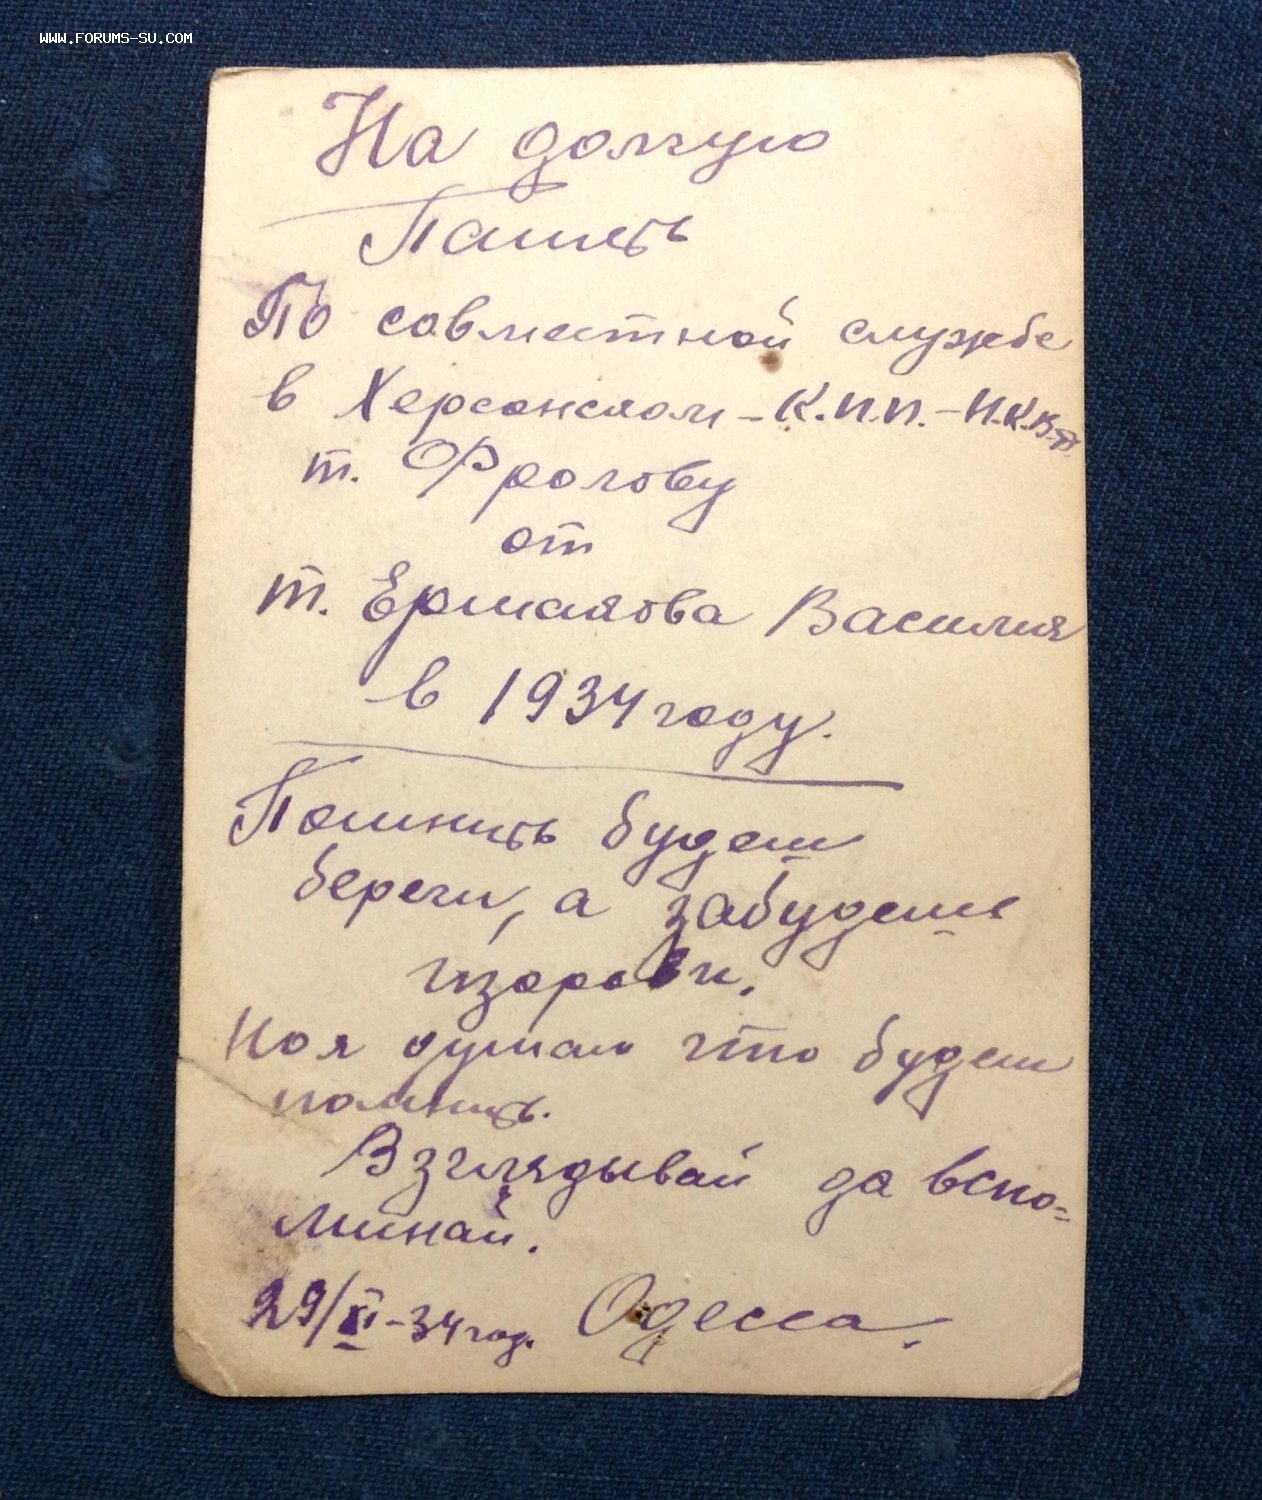 WWW.FORUMS-SU.COM
На долгую
Память
По совместной службе
в Херсонском - К.П.П. - Н.К.В.Д.
т. Фролову
от
т. Ермакова Василия
в 1934 году.
Помнить будеш
береги, а забудеше
изорви.
Но я думаю что будеш
помнить.
Взглядывай да вспо=
минай.
29/XI - 34 год. Одесса.